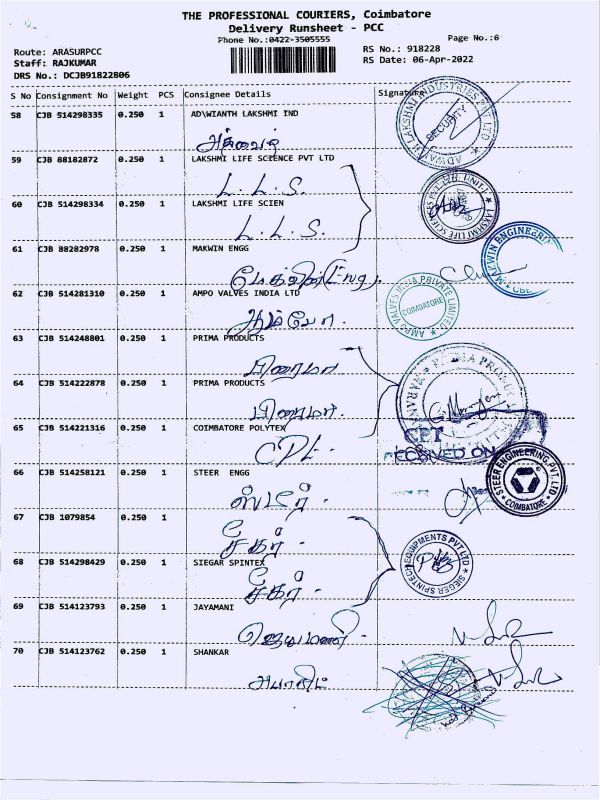 THE PROFESSIONAL COURIERS, Coimbatore
Delivery Runsheet - PCC
Phone No.:0422-3505555
Page No.:6
Route: ARASURPCC
RS No.: 918228
Staff: RAJKUMAR
RS Date: 06-Apr-2022
DRS No.: DCJB91822806
S No Consignment No Weight PCS Consignee Details Signature
58 CJB 514298335 0.250 1 AD\WIANTH LAKSHMI IND
59 CJB 88182872 0.250 1 LAKSHMI LIFE SCIENCE PVT LTD
L.L.S.
60 CJB 514298334 0.250 1 LAKSHMI LIFE SCIEN
L.L.S.
61 CJB 88282978 0.250 1 MAKWIN ENGG
62 CJB 514281310 0.250 1 AMPO VALVES INDIA LTD
AMPO VALVES INDIA PRIVATE LIMITED
COIMBATORE
63 CJB 514248801 0.250 1 PRIMA PRODUCTS
பிரைமா
64 CJB 514222878 0.250 1 PRIMA PRODUCTS
பிரைமா.
65 CJB 514221316 0.250 1 COIMBATORE POLYTEX
66 CJB 514258121 0.250 1 STEER ENGG
ஸ்டீர்
STEER ENGINEERING PVT. LTD
COIMBATORE
67 CJB 1079854 0.250 1
68 CJB 514298429 0.250 1 SIEGAR SPINTEX
SIEGER SPINTECH EQUIPMENTS PVT LTD
69 CJB 514123793 0.250 1 JAYAMANI
ஜெயமணி
70 CJB 514123762 0.250 1 SHANKAR
SECURITY